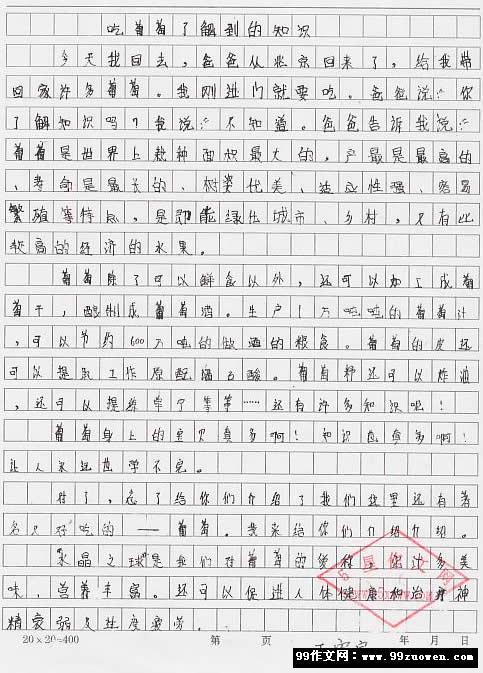 吃葡萄了解到的知识
今天我回去，爸爸从北京回来了，给我带
回家许多葡萄。我刚进门就要吃。爸爸说：“你
了解知识吗？我说：“不知道。爸爸告诉我说：“
葡萄是世界上栽种面积最大的，产最是最高的
、寿命是最长的、树姿优美、适应性强、容易
繁殖等特点，是即能绿化城市、乡村，又有此
较高的经济的水果。
葡萄除了可以鲜食以外，还可以加工成葡
萄干，酿制成葡萄酒。生产1万吨的葡萄汁
，可以节约600万吨的做酒的粮食。葡萄的皮还
可以提取工作原酒石酸。葡萄籽还可以炸油
，还可以提炼单宁等等……还有许多知识呢！
葡萄身上的宝贝真多啊！知识也真多啊！
让人永远也学不完。
对了，忘了给你们介绍了我们这里还有著
名又好吃的——葡萄。我来给你们介绍介绍。
“水晶之球”是我们对葡萄的美称，
味，营养丰富。还可以促进人体健康和治疗神
精衰弱及过度疲劳。
20×20=400 第 页 年 月 日
99作文网：www.99zuowen.com